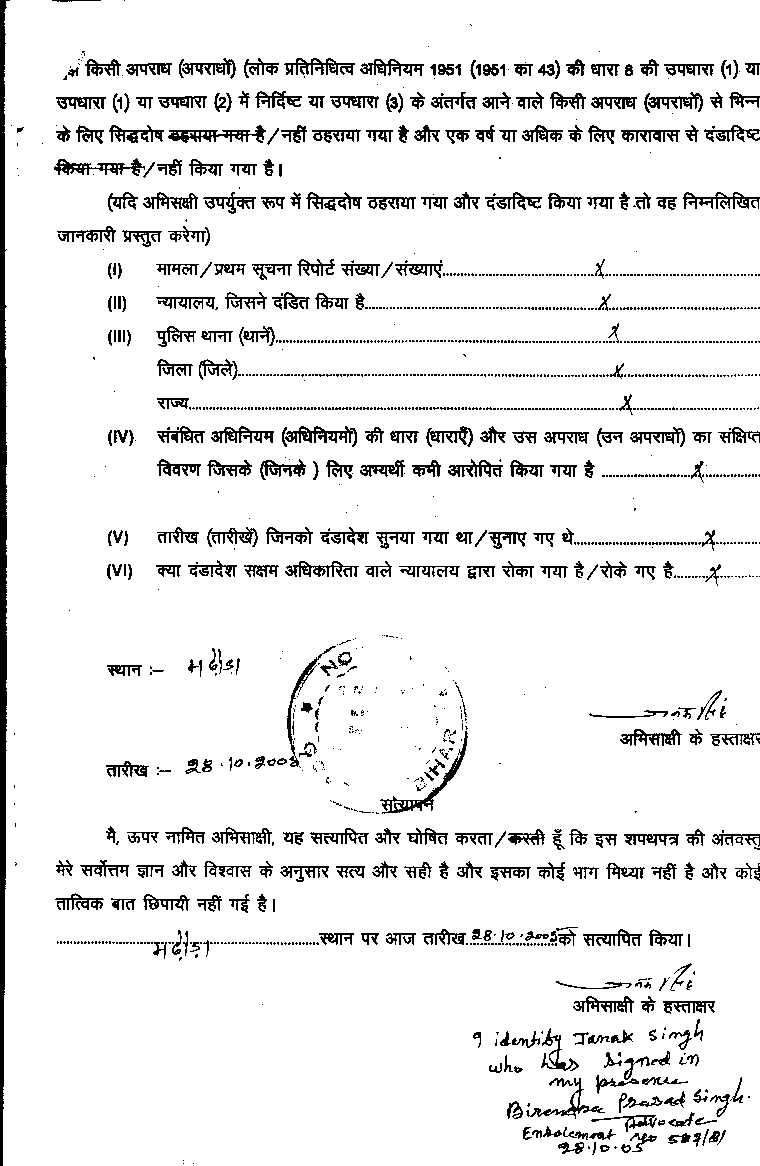 किसी अपराध (अपराधों) (लोक प्रतिनिधित्व अधिनियम 1951 (1951 का 43) की धारा 8 की उपधारा (1) या
उपधारा (1) या उपधारा (2) में निर्दिष्ट या उपधारा (3) के अंतर्गत आने वाले किसी अपराध (अपराधों) से भिन्न
के लिए सिद्धदोष ठहराया गया है/नहीं ठहराया गया है और एक वर्ष या अधिक के लिए कारावास से दंडादिष्ट
किया गया है/नहीं किया गया है।
(यदि अभिसक्षी उपर्युक्त रूप में सिद्धदोष ठहराया गया और दंडादिष्ट किया गया है तो वह निम्नलिखित
जानकारी प्रस्तुत करेगा)
(I) मामला/प्रथम सूचना रिपोर्ट संख्या/संख्याएं.....X.....
(II) न्यायालय, जिसने दंडित किया है.....X.....
(III) पुलिस थाना (थानें).....X.....
जिला (जिले).....X.....
राज्य.....X.....
(IV) संबंधित अधिनियम (अधिनियमों) की धारा (धाराएँ) और उस अपराध (उन अपराधों) का संक्षिप्त
विवरण जिसके (जिनके ) लिए अभ्यर्थी कभी आरोपित किया गया है .....X.....
(V) तारीख (तारीखें) जिनको दंडादेश सुनया गया था/सुनाए गए थे.....X.....
(VI) क्या दंडादेश सक्षम अधिकारिता वाले न्यायालय द्वारा रोका गया है/रोके गए है.....X.....
स्थान :– मढ़ौड़ा
NO
BIHAR
अभिसाक्षी के हस्ताक्षर
तारीख :– 28.10.2005
सत्यापन
मै, ऊपर नामित अभिसाक्षी, यह सत्यापित और घोषित करता/करती हूँ कि इस शपथपत्र की अंतवस्तु
मेरे सर्वोत्तम ज्ञान और विश्वास के अनुसार सत्य और सही है और इसका कोई भाग मिथ्या नहीं है और कोई
तात्विक बात छिपायी नहीं गई है।
.....मढ़ौड़ा.....स्थान पर आज तारीख 28.10.2005 को सत्यापित किया।
अभिसाक्षी के हस्ताक्षर
I identify Janak Singh
who has signed in
my presence
Birendra Prasad Singh.
Advocate
Enrolement No 587/81
28.10.05